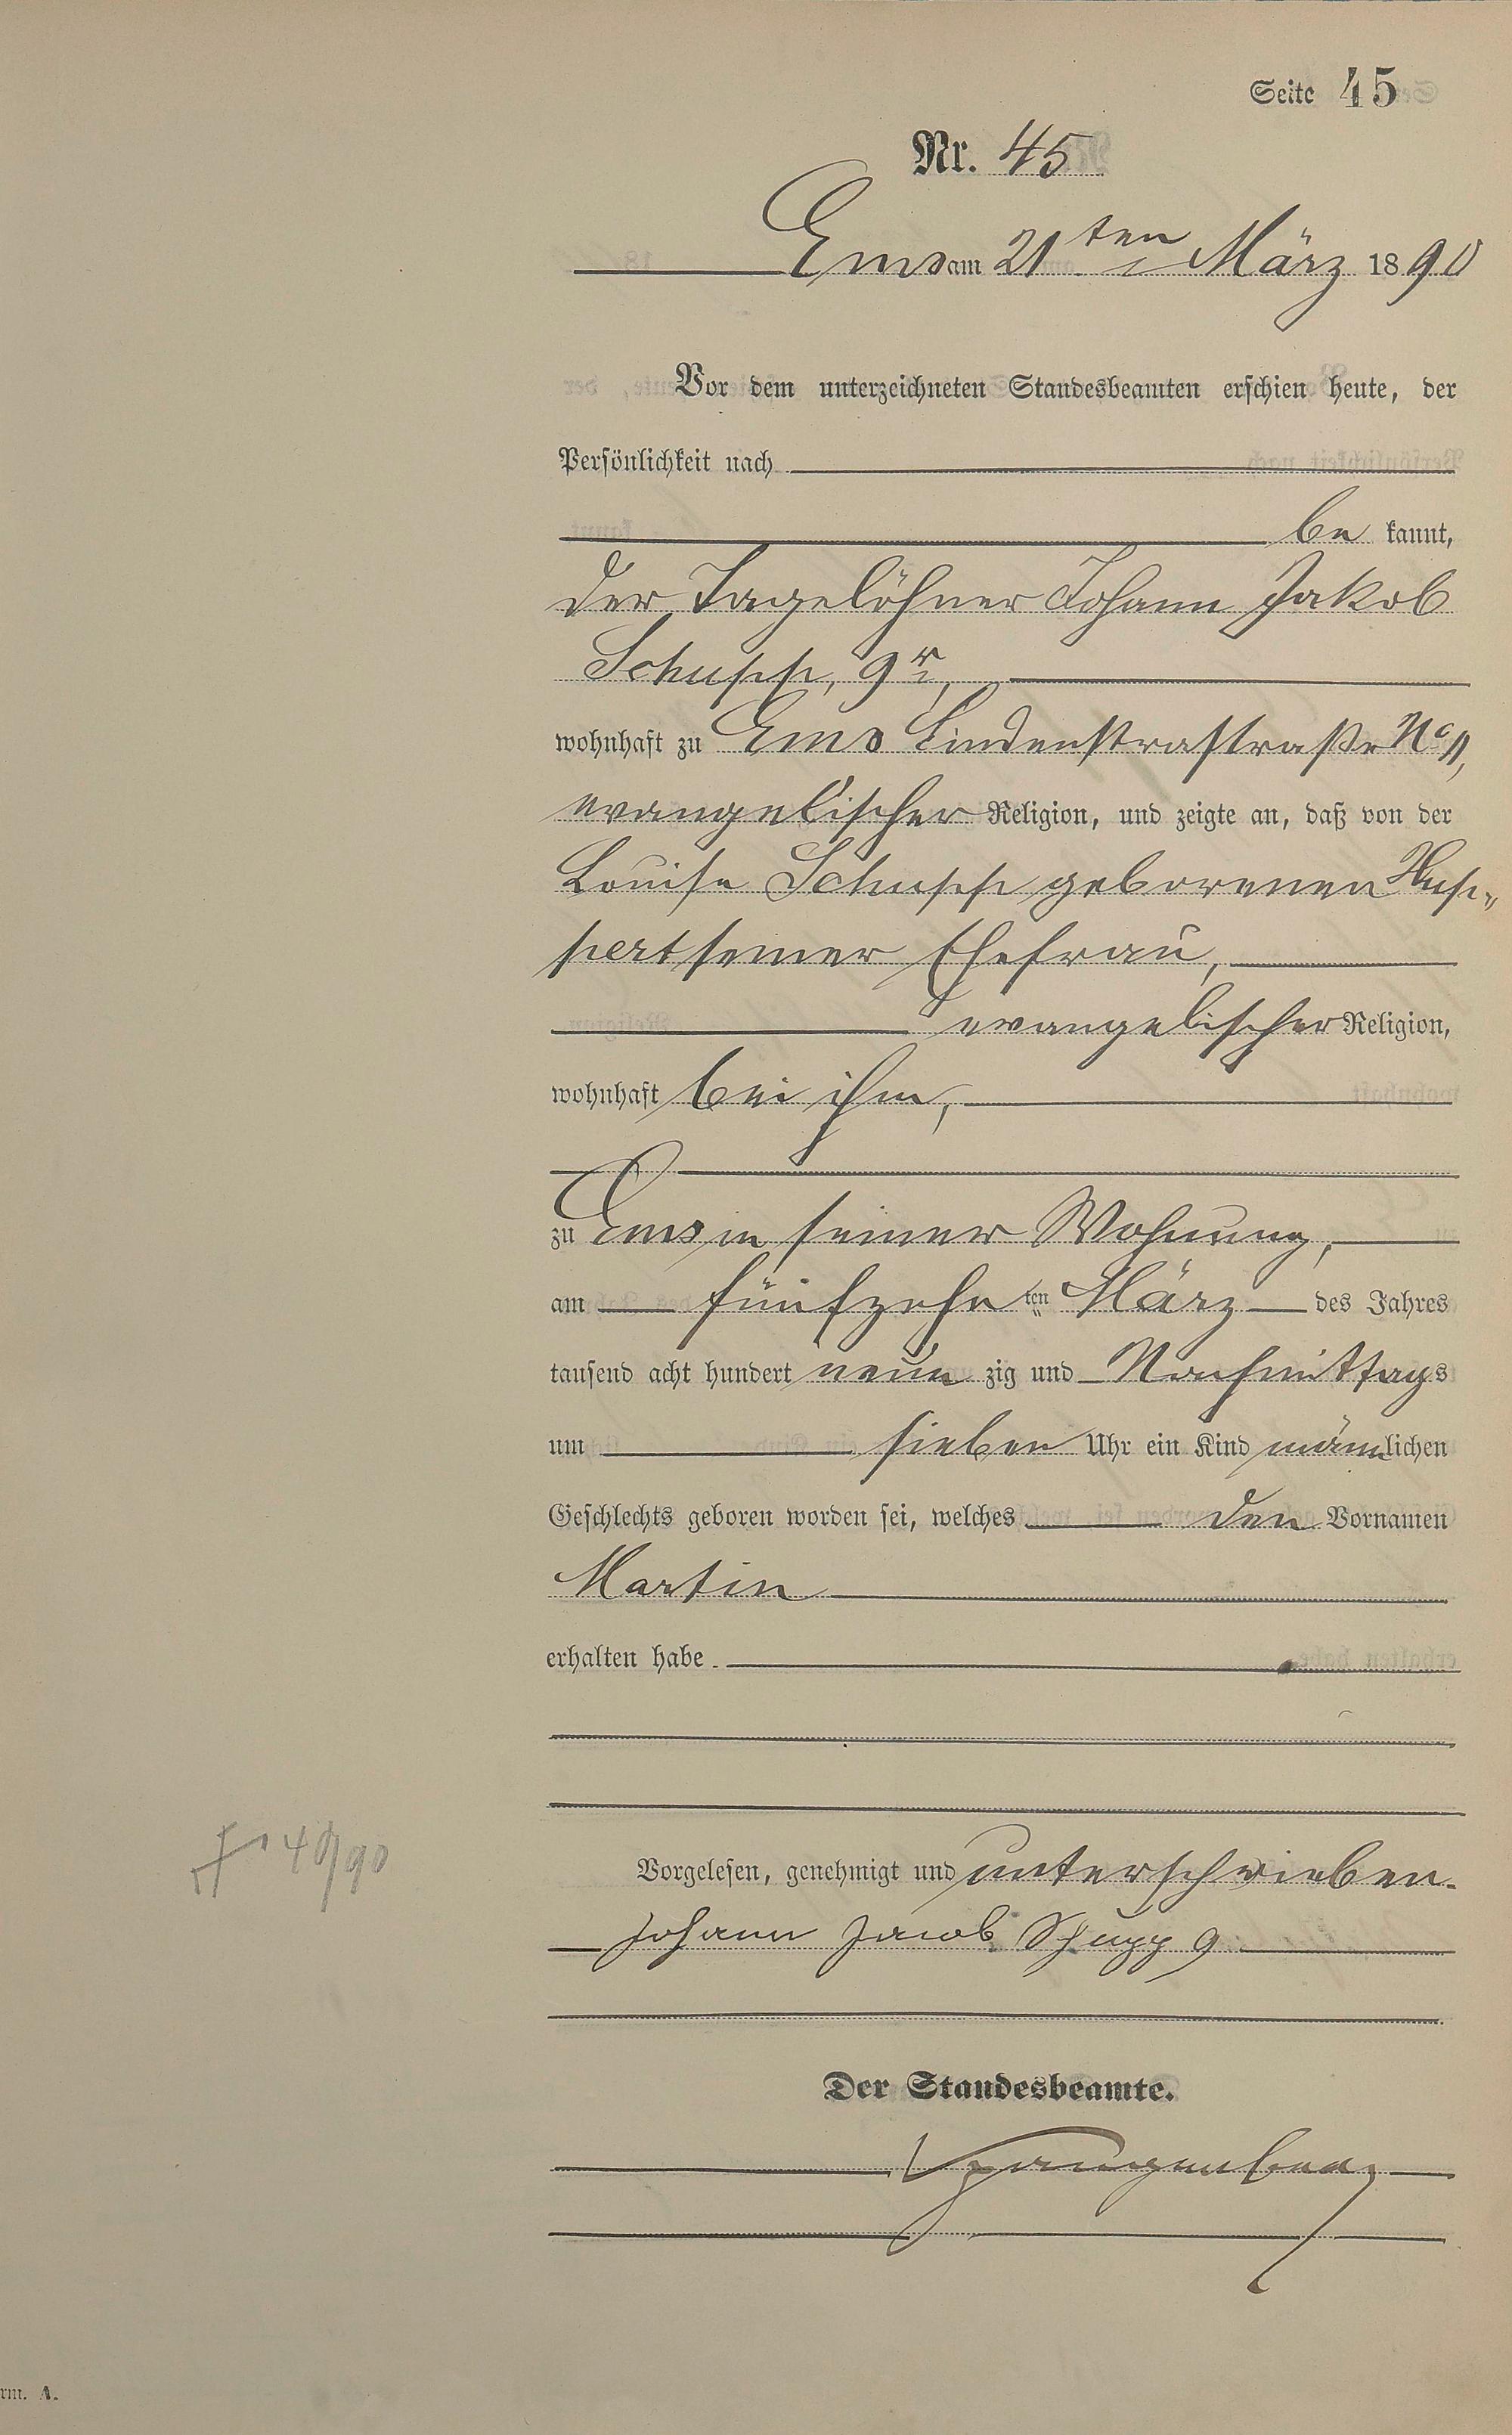 Seite 45
Nr. 45
Ems am 21ten März 1890
Vor dem unterzeichneten Standesbeamten erschien heute, der
Persönlichkeit nach
be kannt,
der Tagelöhner Johann Jakob
Schupp, 9r,
wohnhaft zu Ems Lindenstrastraße No
evangelischer Religion, und zeigte an, daß von der
Louise Schupp geborenen Hup„
pert seiner Ehefrau,
evangelischer Religion,
wohnhaft bei ihm,
zu Ems in seiner Wohnung,
am fünfzehn ten März des Jahres
tausend acht hundert neun zig und Nachmittags
um sieben Uhr ein Kind männlichen
Geschlechts geboren worden sei, welches den Vornamen
Martin
erhalten habe.
Vorgelesen, genehmigt und unterschrieben.
Johann Jacob Schupp 9
Der Standesbeamte.
rm. A.